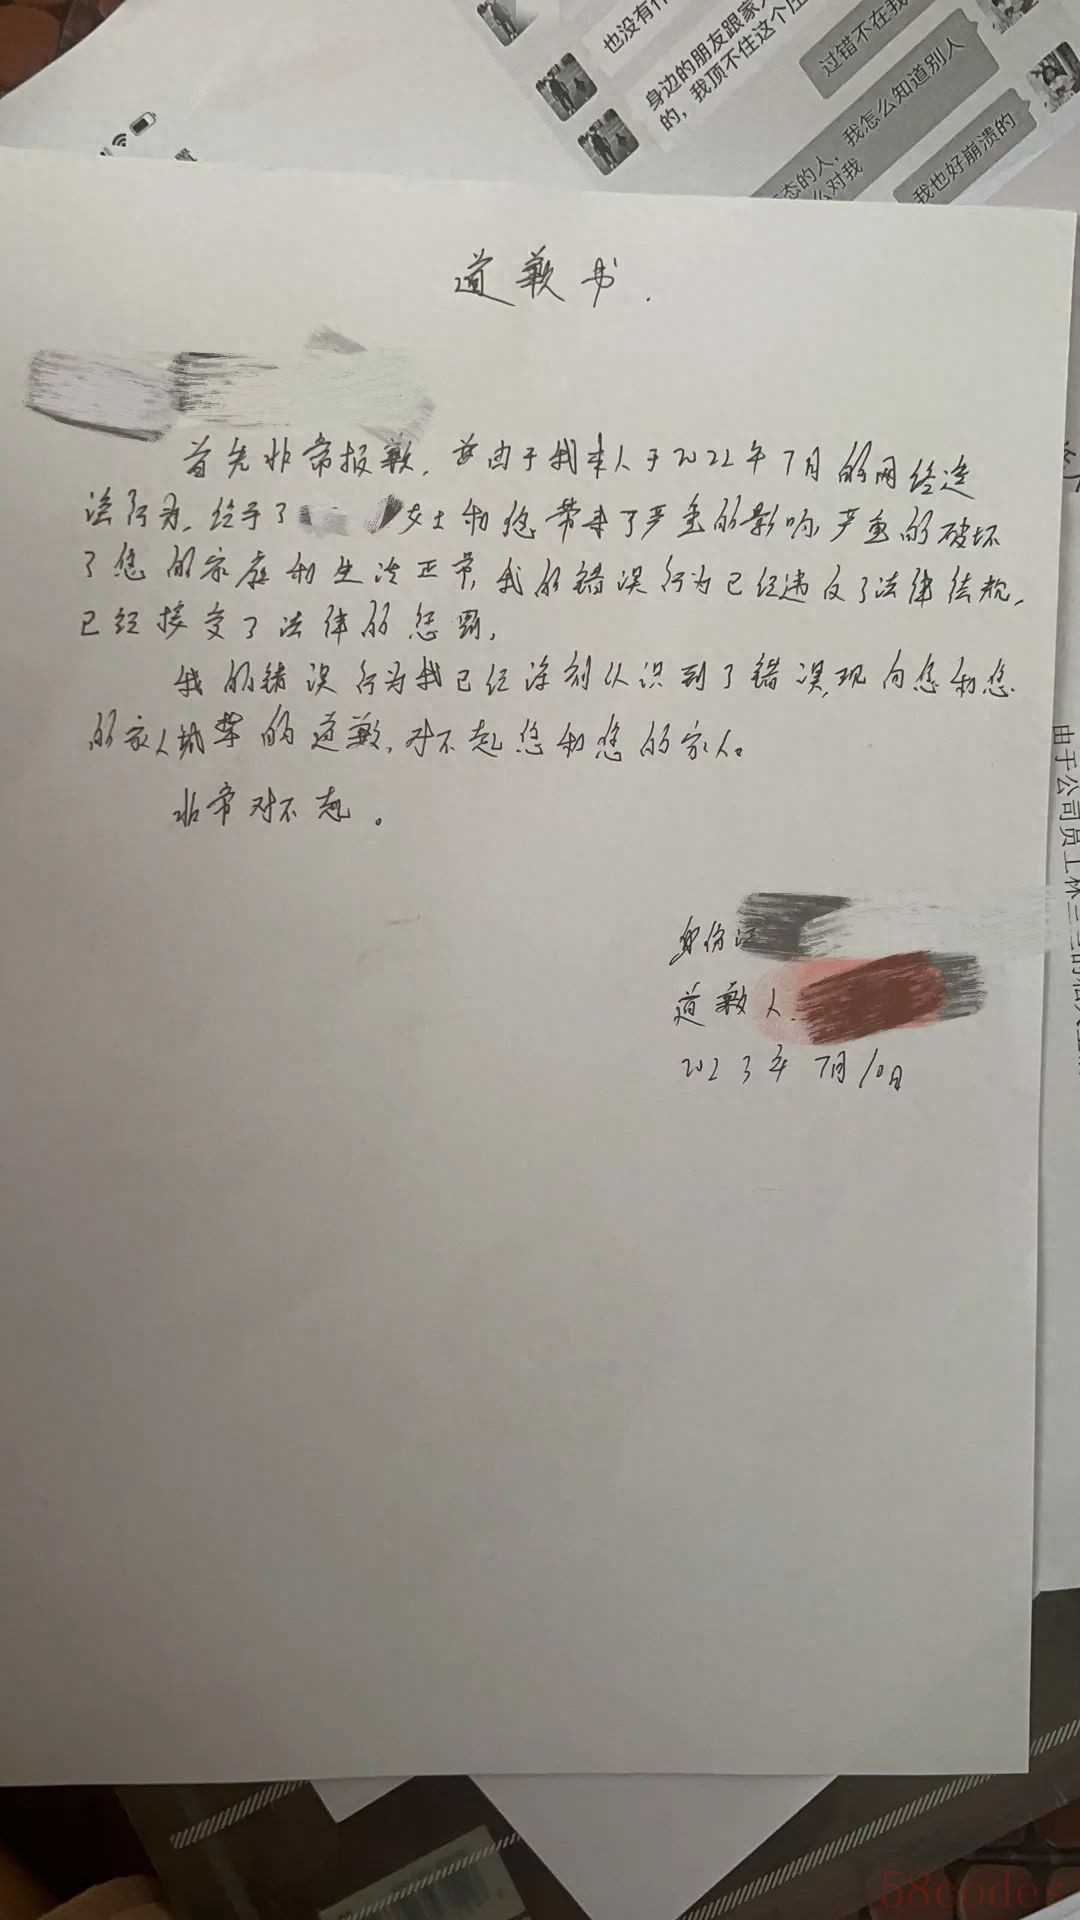 也没有什
身边的朋友跟家
的，我顶不住这个
过错不在我
态的人，我怎么知道别人
么对我
我也好崩溃的
道歉书.
首先非常抱歉，由于我本人于2022年7月的网络违
法行为，给予了
女士和您带来了严重的影响，严重的破坏
了您的家庭和生活正常，我的错误行为已经违反了法律法规，
已经接受了法律的惩罚，
我的错误行为我已经深刻认识到了错误，现向您和您
的家人诚挚的道歉，对不起您和您的家人。
非常对不起。
身份证
道歉人.
2023年7月10日
由于公司员工林三三的
58codes